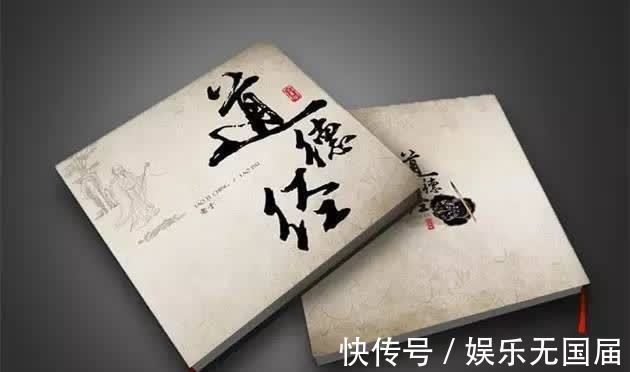 道德经
TAO TE CHING / LAO TSU
老子
道德经
快传号 / 娱乐无国届